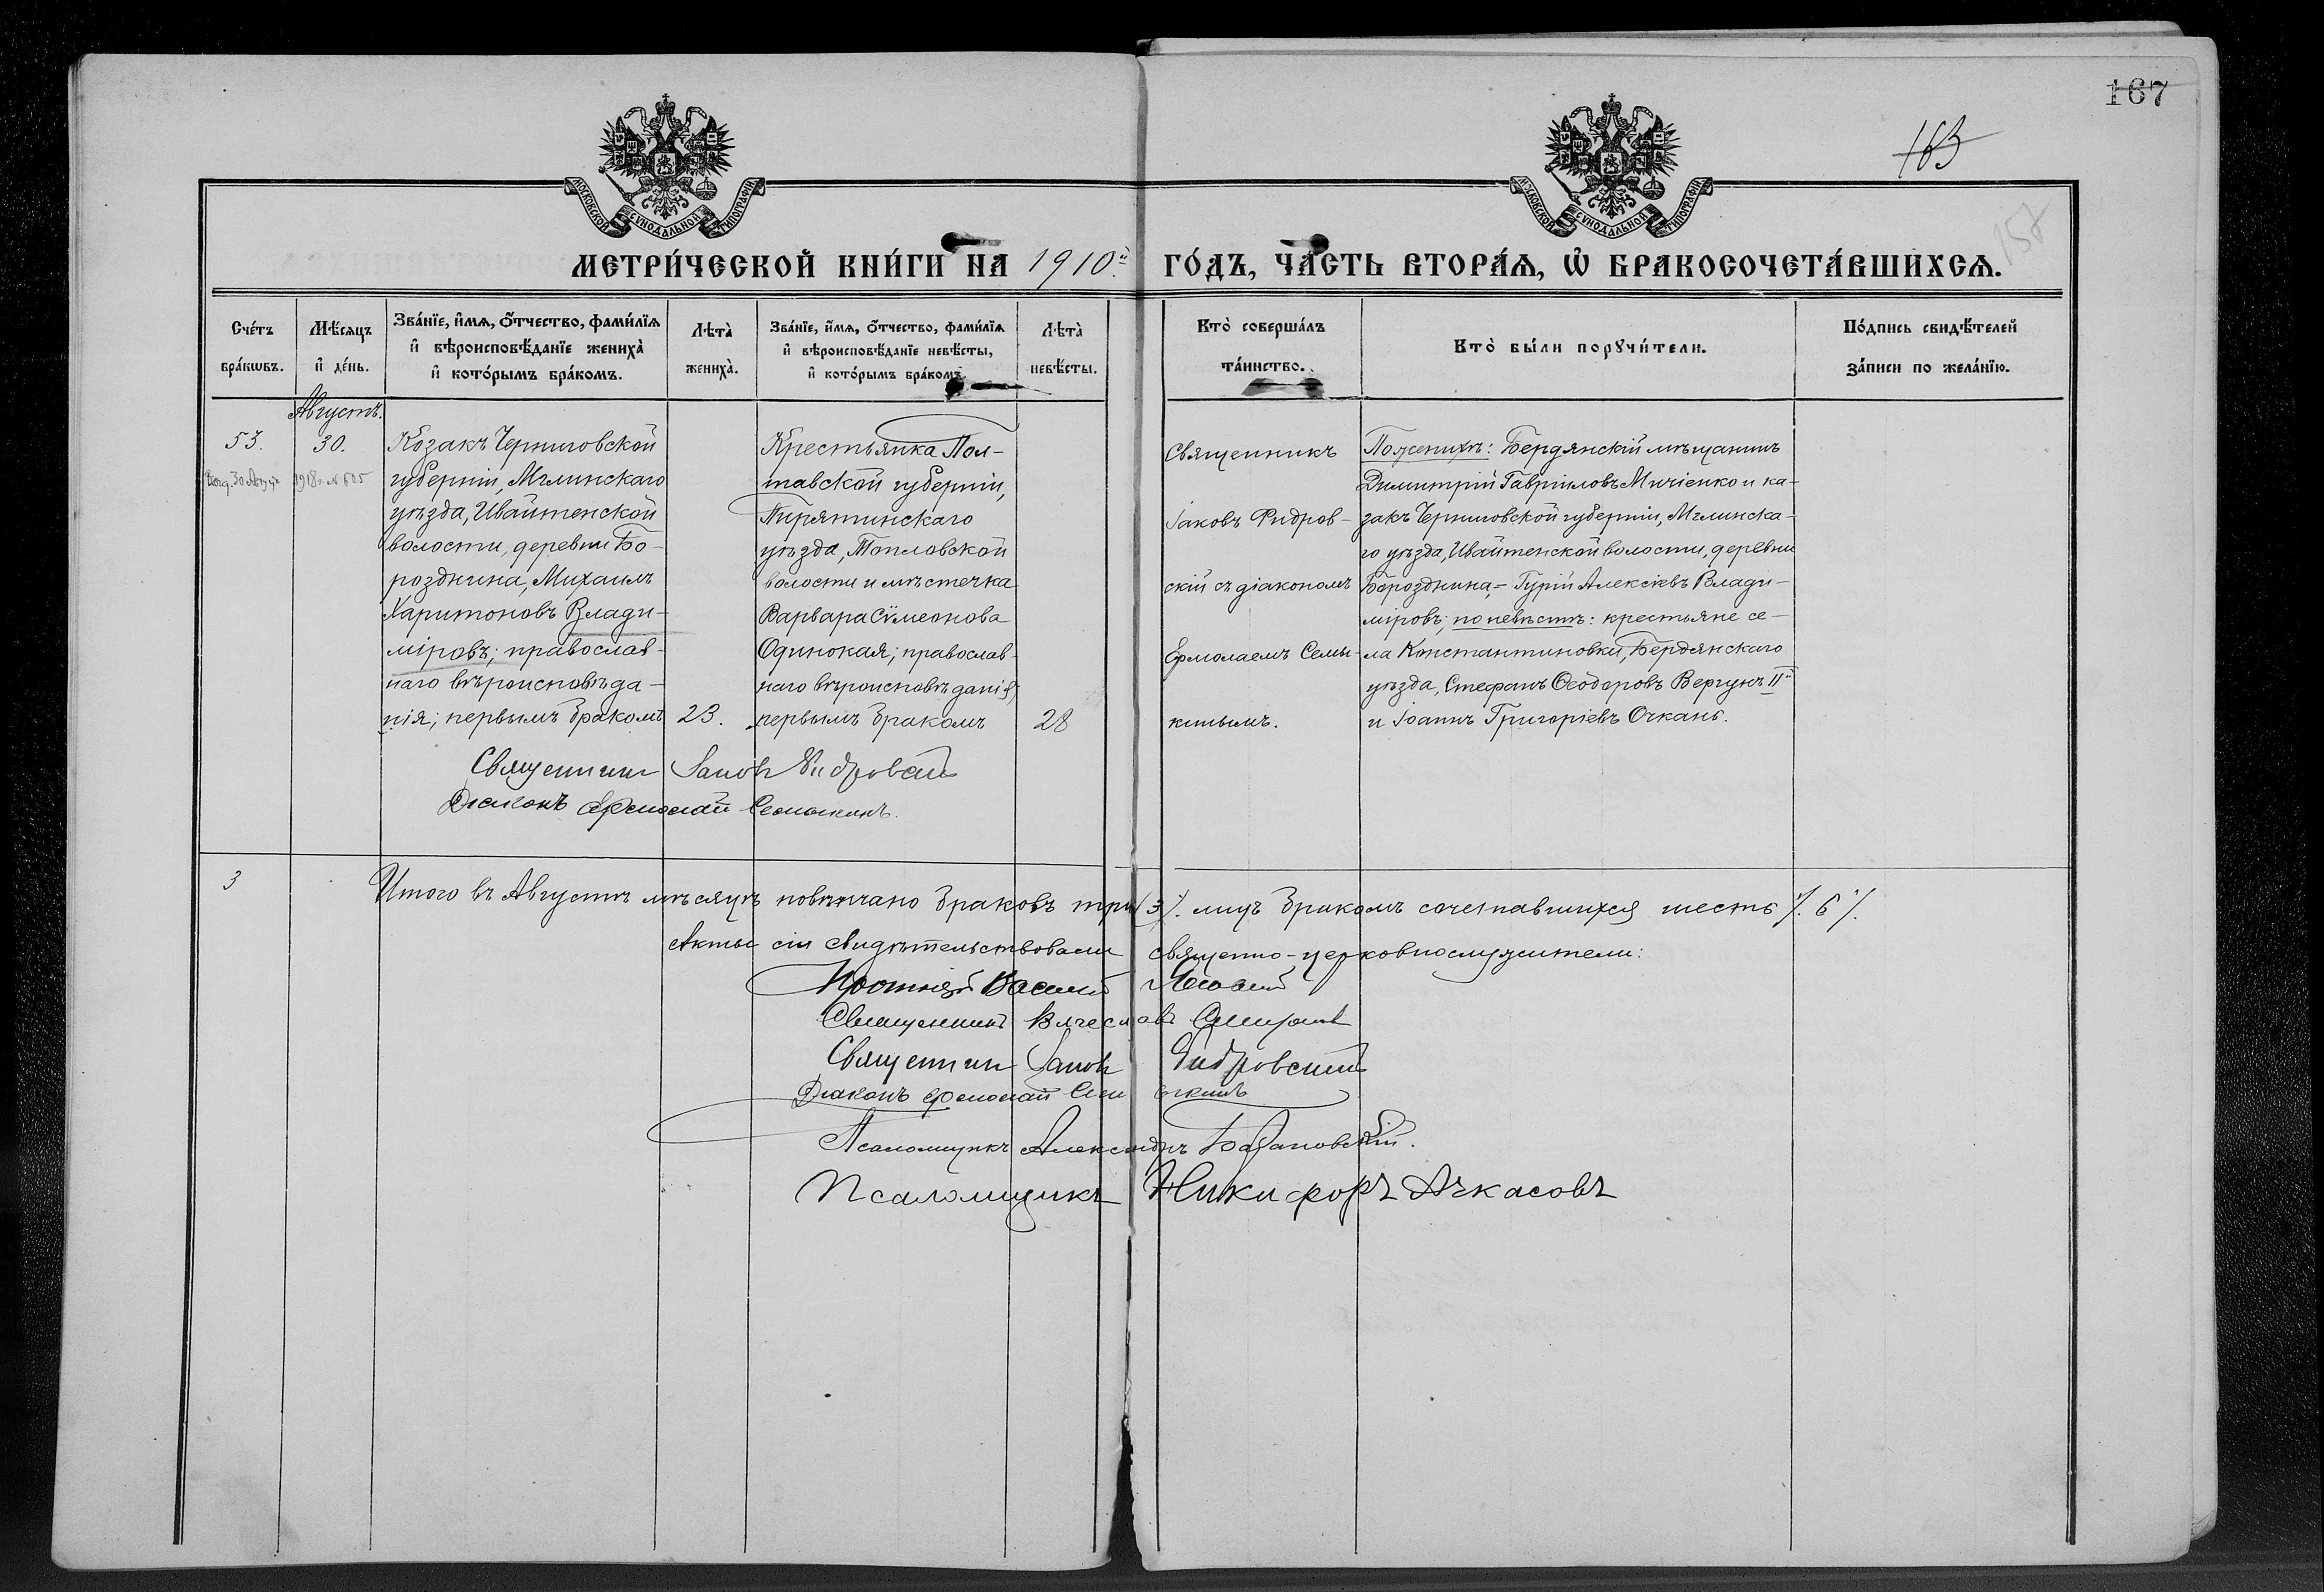 167
163
157
МОСКОВСКОЙ СѴНОДАЛЬНОЙ ТИПОГРАФІИ
МОСКОВСКОЙ СѴНОДАЛЬНОЙ ТИПОГРАФІИ
МЕТРИ́ЧЕСКОЙ КНИ́ГИ НА 1910й ГО́ДЪ, ЧА́СТЬ ВТОРА́Ѧ, Ѽ БРАКОСОЧЕТА́ВШИХСѦ.
Сче́тъ бра́кѡвъ.
Мѣ́сѧцъ и҆ де́нь.
Зва́нїе, и҆́мѧ, ѻ҆́тчество, фами́лїѧ и҆ вѣроисповѣ́данїе жениха̀ и҆ кото́рымъ бра́комъ.
Лѣта̀ жениха̀.
Зва́нїе, и҆́мѧ, ѻ҆́тчество, фами́лїѧ и҆ вѣроисповѣ́данїе невѣ́сты, и҆ кото́рымъ бра́комъ.
Лѣта̀ невѣ́сты.
Кто̀ соверша́лъ та́инство.
Кто̀ бы́ли порꙋчи́тели.
По́дпись свидѣ́телей за́писи по жела́нїю.
Августъ.
53.
30.
30 Август 1918 г. № 605
Козакъ Черниговской
губерніи, Мглинскаго
уѣзда, Ивайтенской
волости, деревни Бо-
роздкина, Михаилъ
Харитоновъ Влади-
міровъ; православ-
наго вѣроисповѣда-
нія; первымъ бракомъ
23.
Крестьянка Пол-
тавской губерніи,
Пирятинскаго
уѣзда, Тапловской
волости и мѣстечка
Варвара Сѵмеонова
Одинокая; православ-
наго вѣроисповѣданія;
первымъ бракомъ
28
Священникъ
Іаковъ Фидров-
скій съ діакономъ
Ермолаемъ Семы-
кинымъ.
По женихѣ: Бердянскій мѣщанинъ
Димитрій Гавріиловъ Мичіенко и ка-
закъ Черниговской губерніи, Мглинска-
го уѣзда, Ивайтенской волости, деревни
Бороздкина,- Гурій Алексіевъ Влади-
міровъ; по невѣстѣ: крестьяне се-
ла Константиновки, Бердянскаго
уѣзда, Стефанъ Ѳеодоровъ Вергунъ IIй
и Іоаннъ Григоріевъ Очкань.
Священникъ Іаковъ Фидровскій
Діаконъ Ермолай Семыкинъ.
3
Итого въ Августѣ мѣсяцѣ повѣнчано браковъ три /3/. лицъ бракомъ сочетавшихся шесть /. 6 /.
Акты сіи свидѣтельствовали священно-церковнослужители:
Протоіерей Василій
Священникъ Вячеславъ
Священникъ Іаковъ Фидровскій
Діаконъ Ермолай Семыкинъ
Псаломщикъ Александръ Барановскій.
Псаломщикъ Никифоръ Ачкасовъ